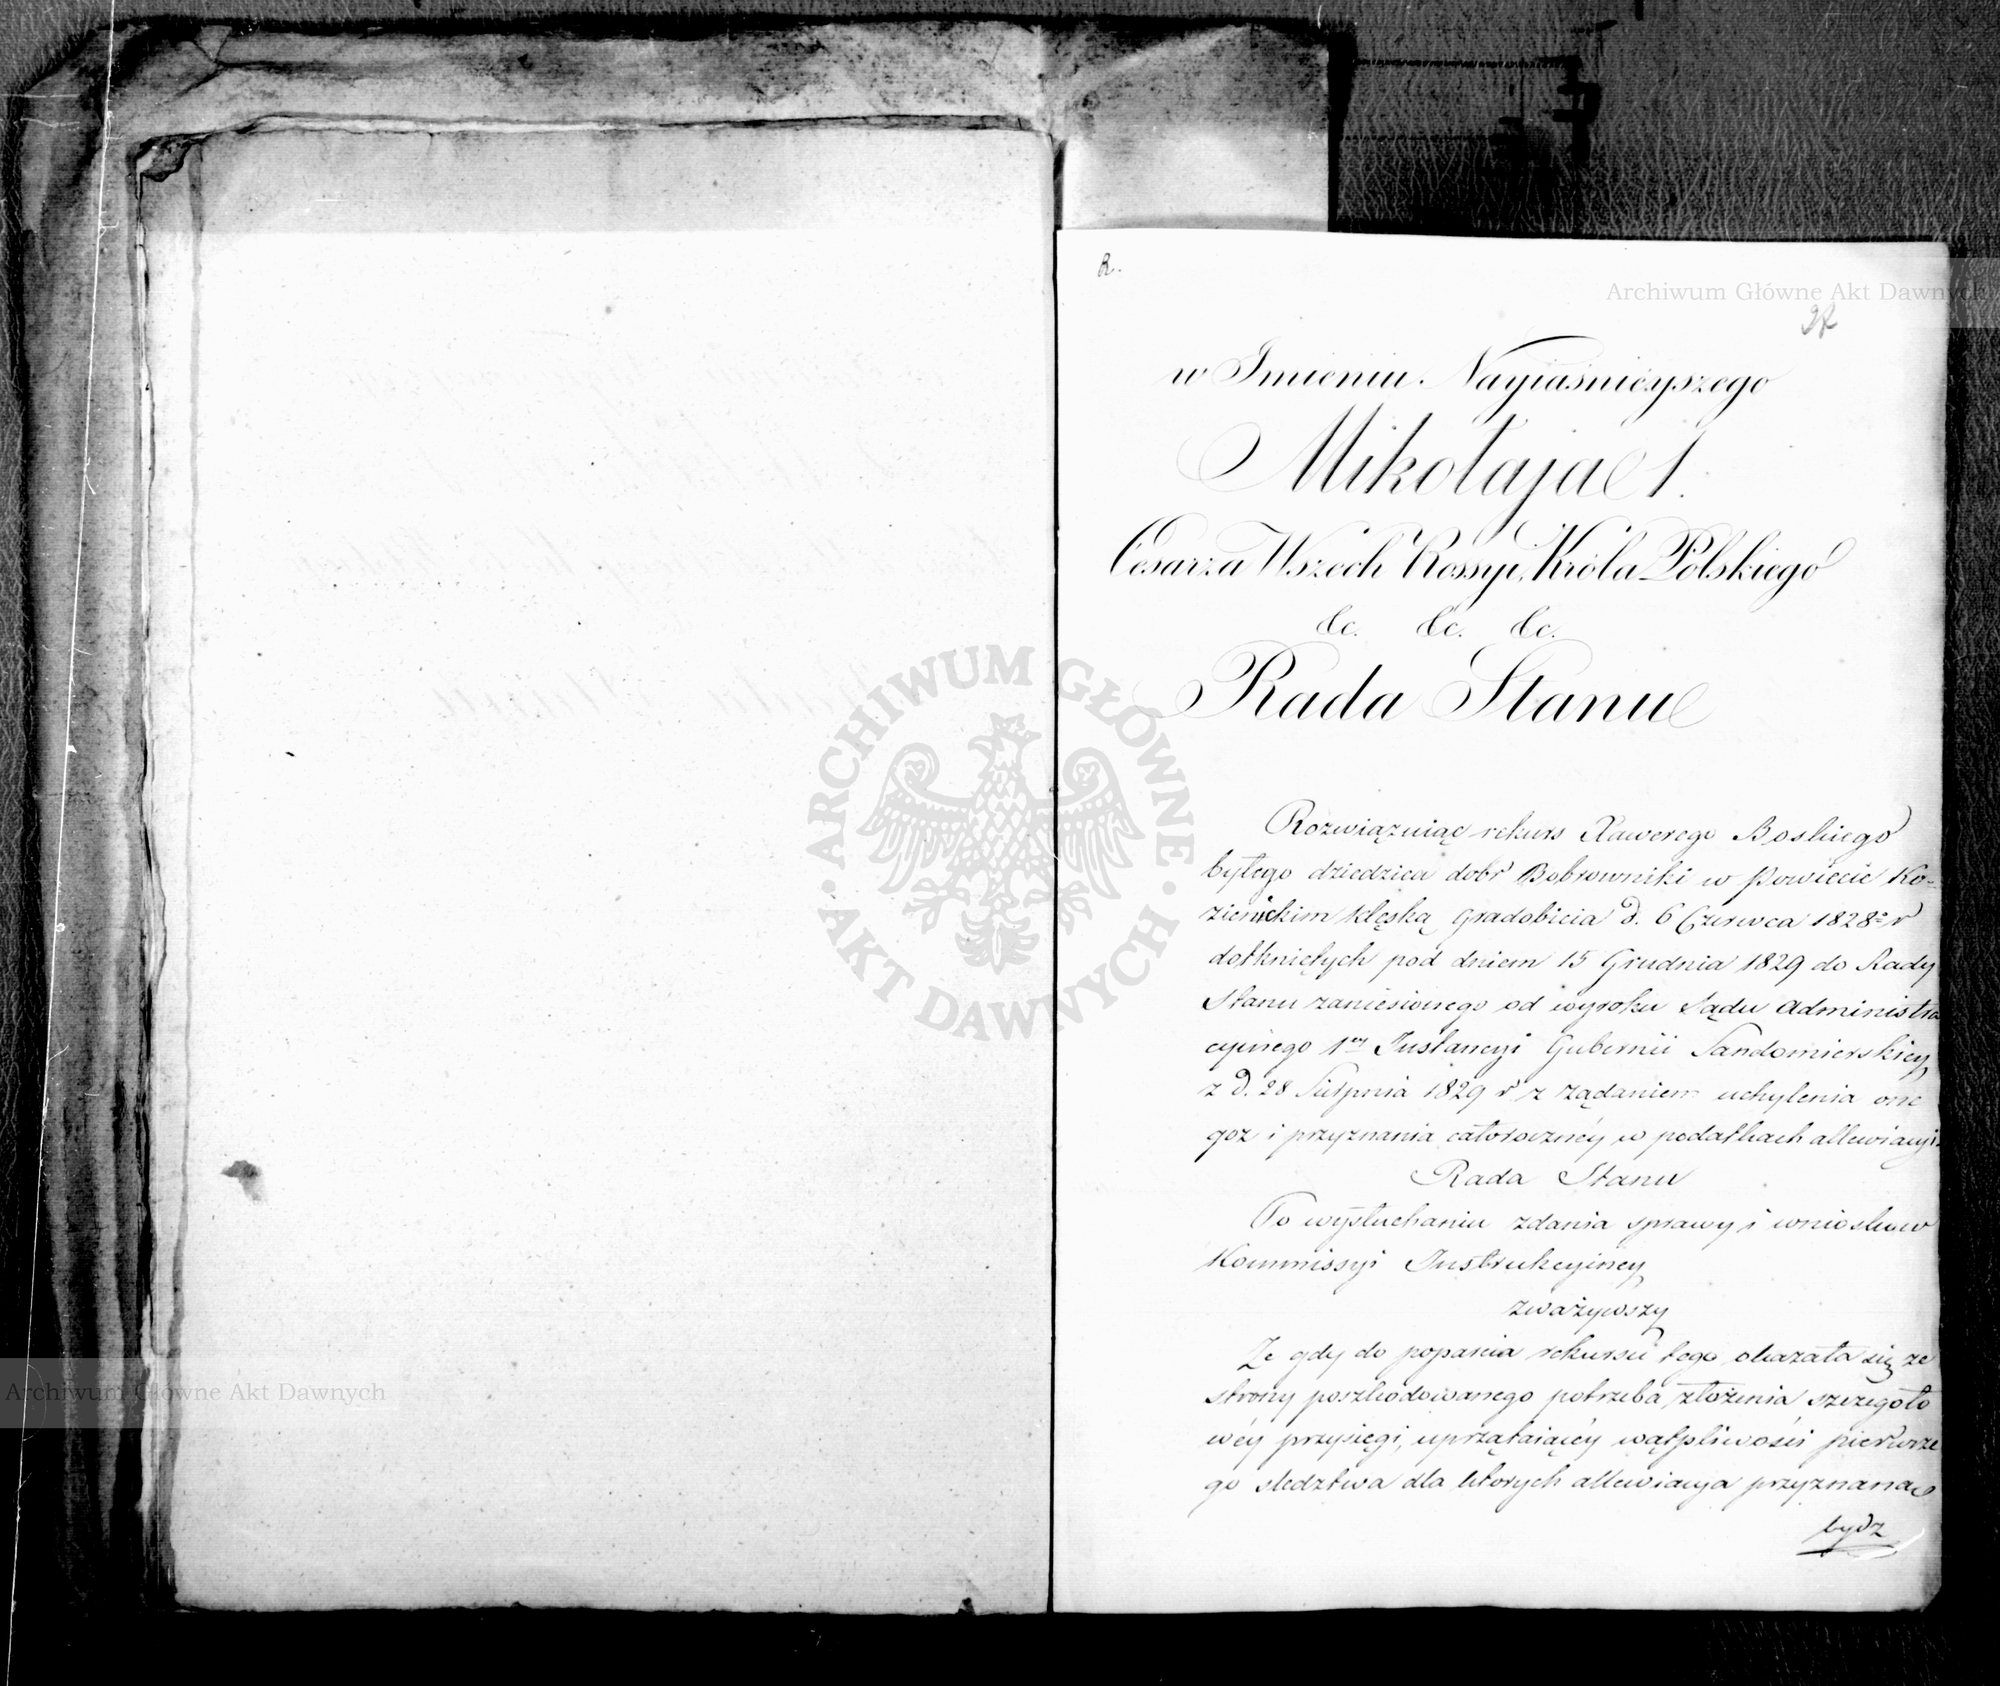 R.
Archiwum Główne Akt Dawnych
w Imieniu Nayiaśnieyszego
Mikołaja 1.
Cesarza Wszech Rossyi, Króla Polskiego
&c. &c. &c.
Rada Stanu
Rozwiązuiąc rekurs Xawerego Boskiego
byłego dziedzica dobr Bobrowniki w Powiecie Ko-
zienickim klęską Gradobicia d. 6 Czerwca 1828º r
dotkniętych pod dniem 15 Grudnia 1829 do Rady
Stanu zaniesionego od wyroku Sądu Administra
cyinego 1ey Instancyi Gubernii Sandomierskiey,
z d. 28 Sierpnia 1829 r z żądaniem uchylenia one
goz i przyznania całoroczney w podatkach allewiacyi.
Rada Stanu
Po wysłuchaniu zdania sprawy i wniosków
Kommissyi Instrukcyiney
zważywszy
Ze gdy do poparcia rekursu tego okazała się ze
strony poszkodowanego potrzeba złożenia szczegoło
wéy przysięgi, uprzątaiącéy wątpliwości pierwsze
go sledztwa dla ktorych allewiacya przyznana
bydz
ARCHIWUM GŁÓWNE AKT DAWNYCH
Archiwum Główne Akt Dawnych